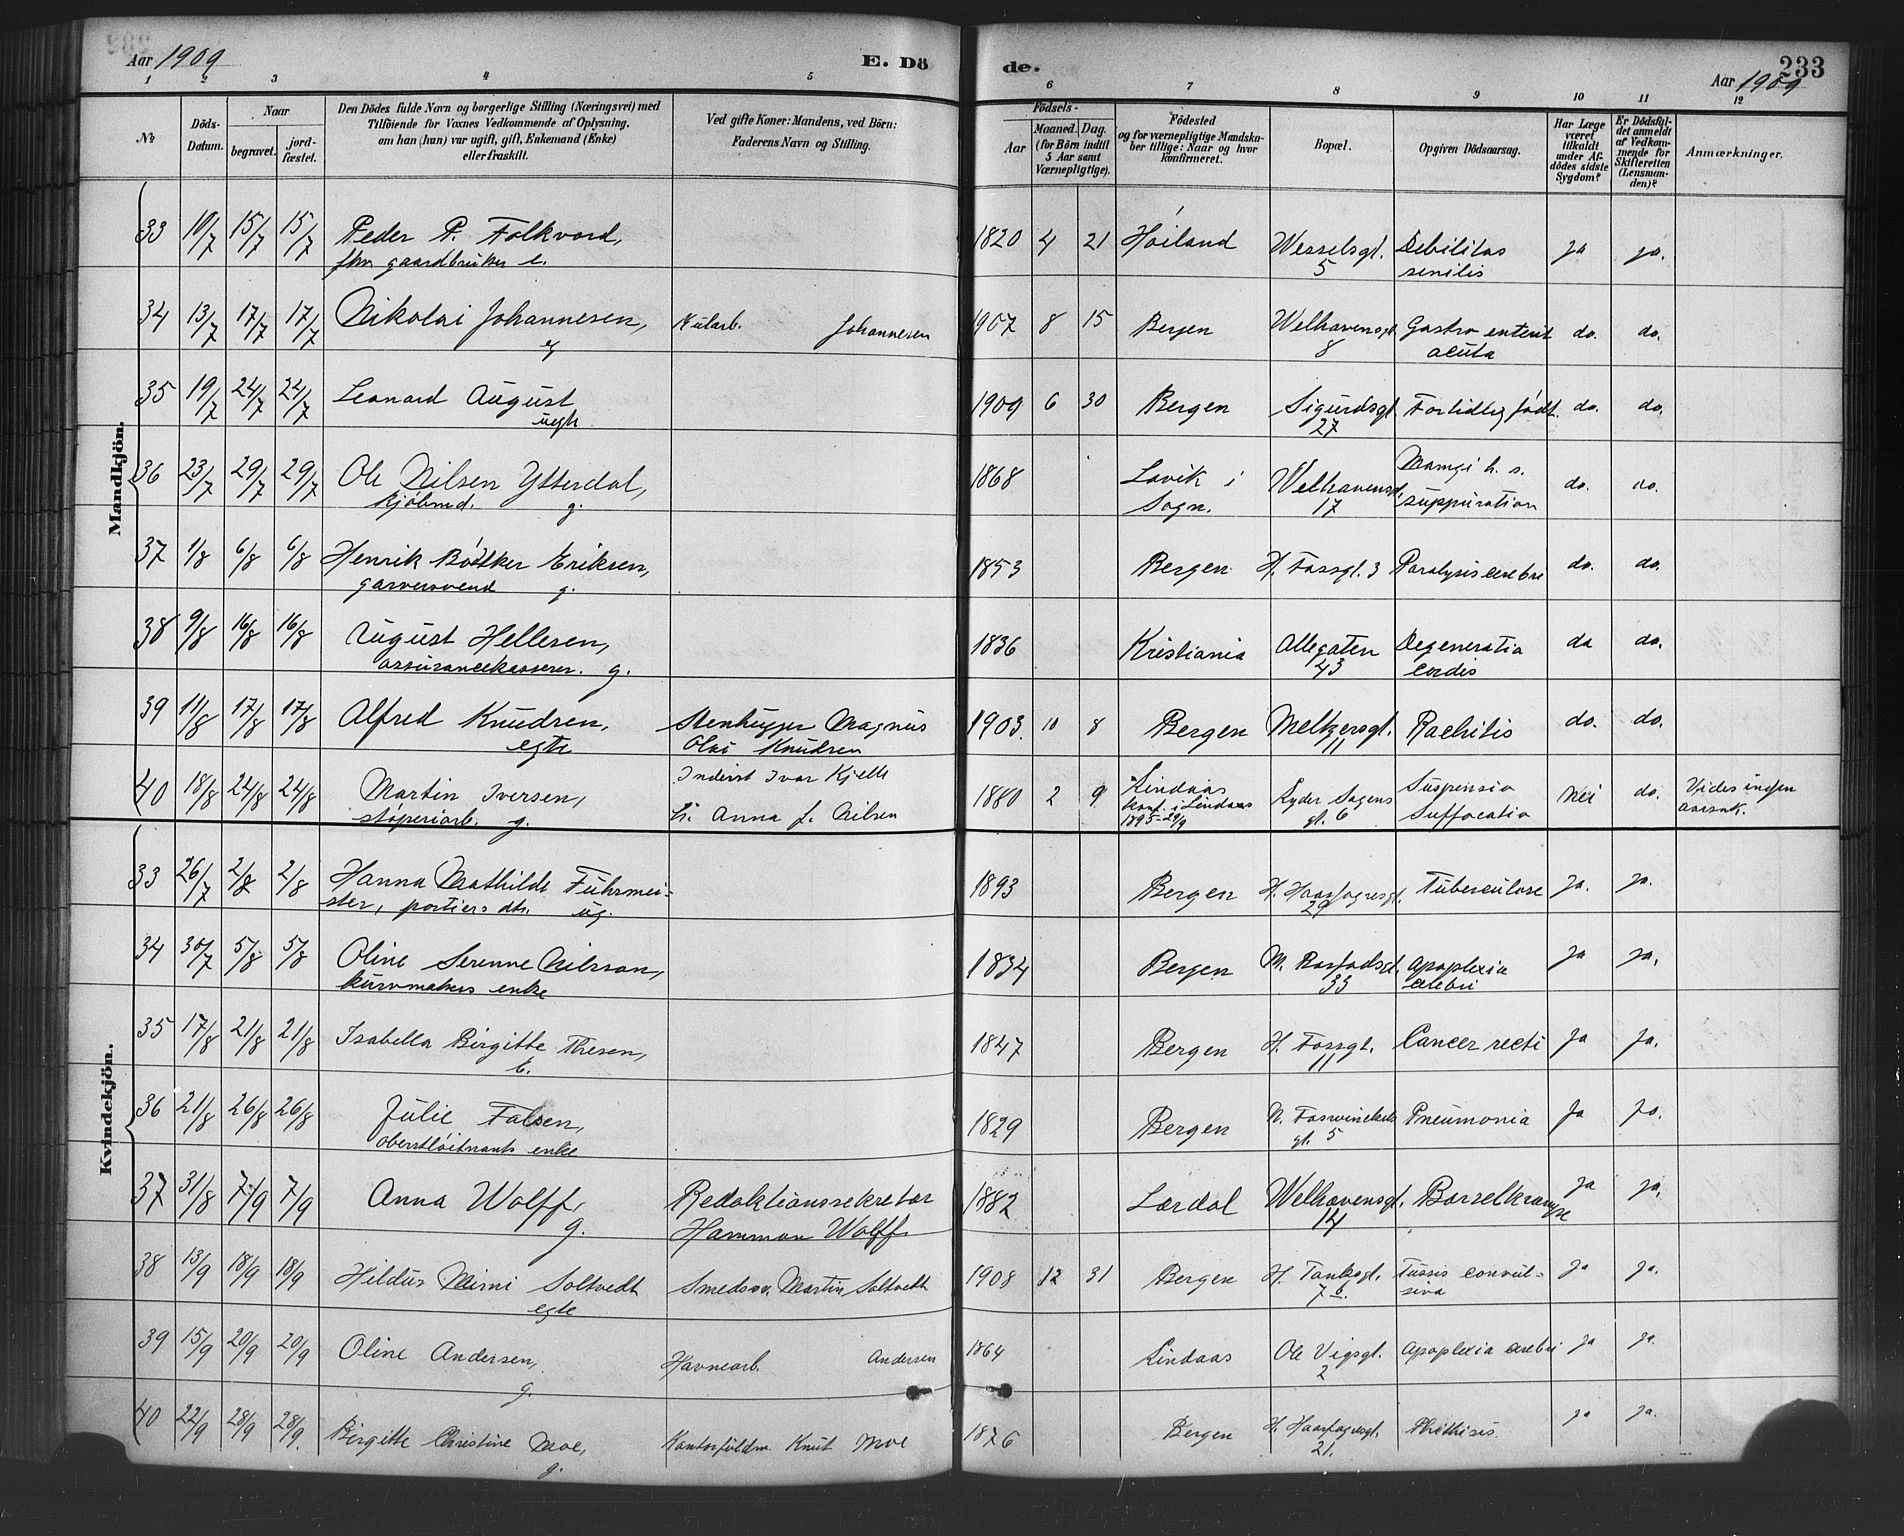 Aar 1909
E. Dö
de.
233
Aar 1909
1 2 3 4 5 6 7 8 9 10 11 12
No
Döds-
Datum.
Naar
begravet.
jord-
fæstet.
Den Dödes fulde Navn og borgerlige Stilling (Næringsvei) med
Tilföiende for Voxnes Vedkommende af Oplysning,
om han (hun) var ugift, gift, Enkemand (Enke)
eller fraskilt.
Ved gifte Koner: Mandens, ved Börn:
Faderens Navn og Stilling.
Födsels-
Aar
Maaned.
Dag.
(for Börn indtil
5 Aar samt
Værnepligtige).
Födested
og for værnepligtige Mandska-
ber tillige: Naar og hvor
konfirmeret.
Bopæl.
Opgiven Dödsaarsag.
Har Læge
været
tilkaldt
under Af-
dödes sidste
Sygdom?
Er Dödsfal-
det anmeldt
af Vedkom-
mende for
Skifteretten
(Lensman-
den)?
Anmærkninger.
Mandkjön.
33 10/7 15/7 15/7 Peder P. Folkvord, 1820 4 21 Høiland Wesselsgt. Debilitas ja ja.
fhv gaardbruker e. 5 senilis
34 13/7 17/7 17/7 Nikolai Johannesen, Kularb. Johannesen 1907 8 15 Bergen Welhavensgt. Gastro enterit do. do.
eg 8 acuta
35 19/7 24/7 24/7 Leonard August 1909 6 30 Bergen Sigurdsgt. Fortidlig født. do. do.
uegte 27
36 23/7 29/7 29/7 Ole Nilsen Ytterdal, 1868 Lavik i Welhavensgt. h. s. do. do.
kjøbmd. g. Sogn. 17 suppuration
37 1/8 6/8 6/8 Henrik Bøtker Eriksen, 1853 Bergen H. Fossgt. 3 Paralysis cerebri do. do.
garversvend g.
38 9/8 16/8 16/8 August Hellesen, 1836 Kristiania Allegaten Degeneratio do do.
assurancekasserer. g. 43 cordis
39 11/8 17/8 17/8 Alfred Knudsen, Stenhugger Magnus 1903. 10 8 Bergen Meltzersgt. Rachitis do. do.
egte Olai Knudsen 11
40 18/8 24/8 24/8 Martin Iversen, Inderst Ivar Kjelle 1880 2 9 Lindaas Lyder Sagens Suspensio nei do. Vides ingen
støperiarb. g. h. Anna f. Nilsen konf. i Lindaas gt. 6 Suffocatio
1895 29/9
Kvindekjön.
33 26/7 2/8 2/8 Hanna Mathilde Fuhrmei- 1893 Bergen H. Haarfagresgt. Tuberculose ja. ja.
ster, portiers dtr. ug. 29
34 30/7 5/8 5/8 Oline Serenne Nilsson, 1834 Bergen apoplexia ja ja.
kurvmakers enke 33 cerebri
35 17/8 21/8 21/8 Isabella Birgitte Thesen, 1847 Bergen H. Fossgt. Cancer recti ja ja.
E. 11
36 21/8 26/8 26/8 Julie Falsen, 1829 Bergen N. Pneumonia ja ja.
oberstløitnants enke gt. 5
37 31/8 7/9 7/9 Anna Wolff, Redaktionssekretær 1882 Lærdal Welhavensgt. Barselkrampe ja ja.
g. Hammon Wolff. 14
38 13/9 18/9 18/9 Hildur Mimi Soltvedt Smedsv. Martin Soltvedt 1908 12 31 Bergen H. Tanksgt. Tussis convul- ja ja.
egte 7 b. siva
39 15/9 20/9 20/9 Oline Andersen, Havnearb. Andersen 1864 Lindaas Ole Vigsgt. apoplexia cerebri ja ja.
g. 2
40 22/9 28/9 28/9. Birgitte Christine Moe, Kontorfuldm. Knut Moe 1876 Bergen H. Haarfagresgt. Phthisis. ja ja.
g. 21.